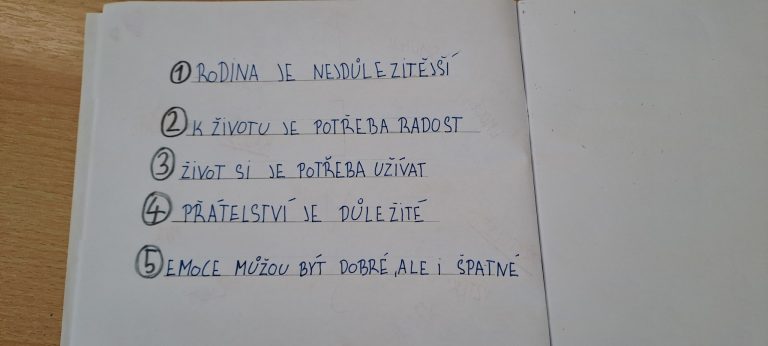 1 RODINA JE NEJDŮLEZITĚJŠÍ
2 K ŽIVOTU JE POTŘEBA RADOST
3 ŽIVOT SI JE POTŘEBA UŽÍVAT
4 PŘÁTELSTVÍ JE DŮLEŽITÉ
5 EMOCE MŮŽOU BÝT DOBRÉ, ALE i ŠPATNÉ